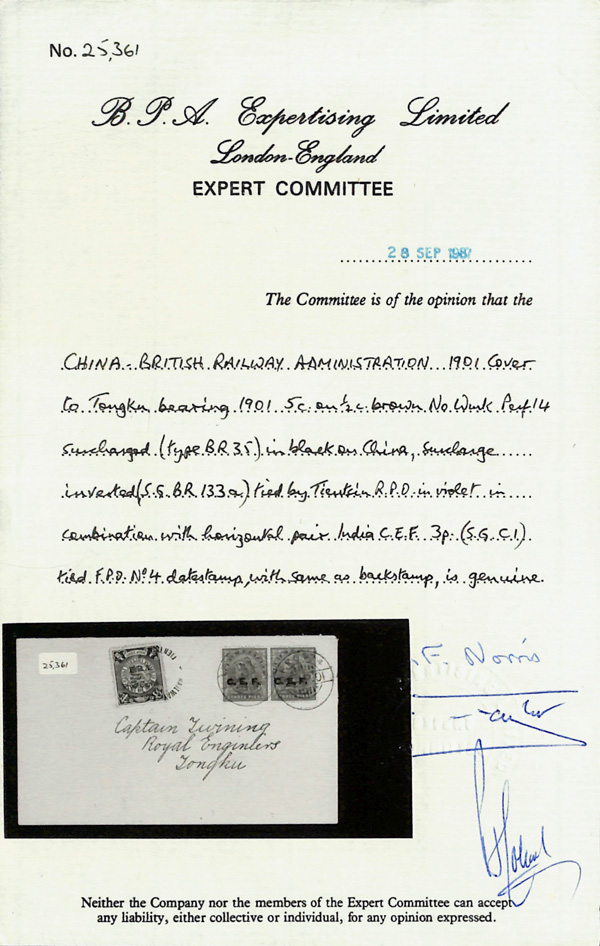 No. 25,361
B. P. A. Expertising Limited
London-England
EXPERT COMMITTEE
28 SEP 1987
The Committee is of the opinion that the
CHINA - BRITISH RAILWAY ADMINISTRATION 1901 Cover
to Tongku bearing 1901 5c. on ½c. brown No Wmk Perf 14
surcharged (type B.R.35) in black on China, surcharge
inverted (S.G. B.R. 133a) tied by Tientsin R.P.O. in violet in
combination with horizontal pair India C.E.F. 3p. (S.G. C.1)
tied F.P.O. Nº 4 datestamp, with same as backstamp, is genuine.
25,361
C.E.F. C.E.F.
Captain Twining
Royal Engineers
Tongku
.F. Norris
Neither the Company nor the members of the Expert Committee can accept
any liability, either collective or individual, for any opinion expressed.